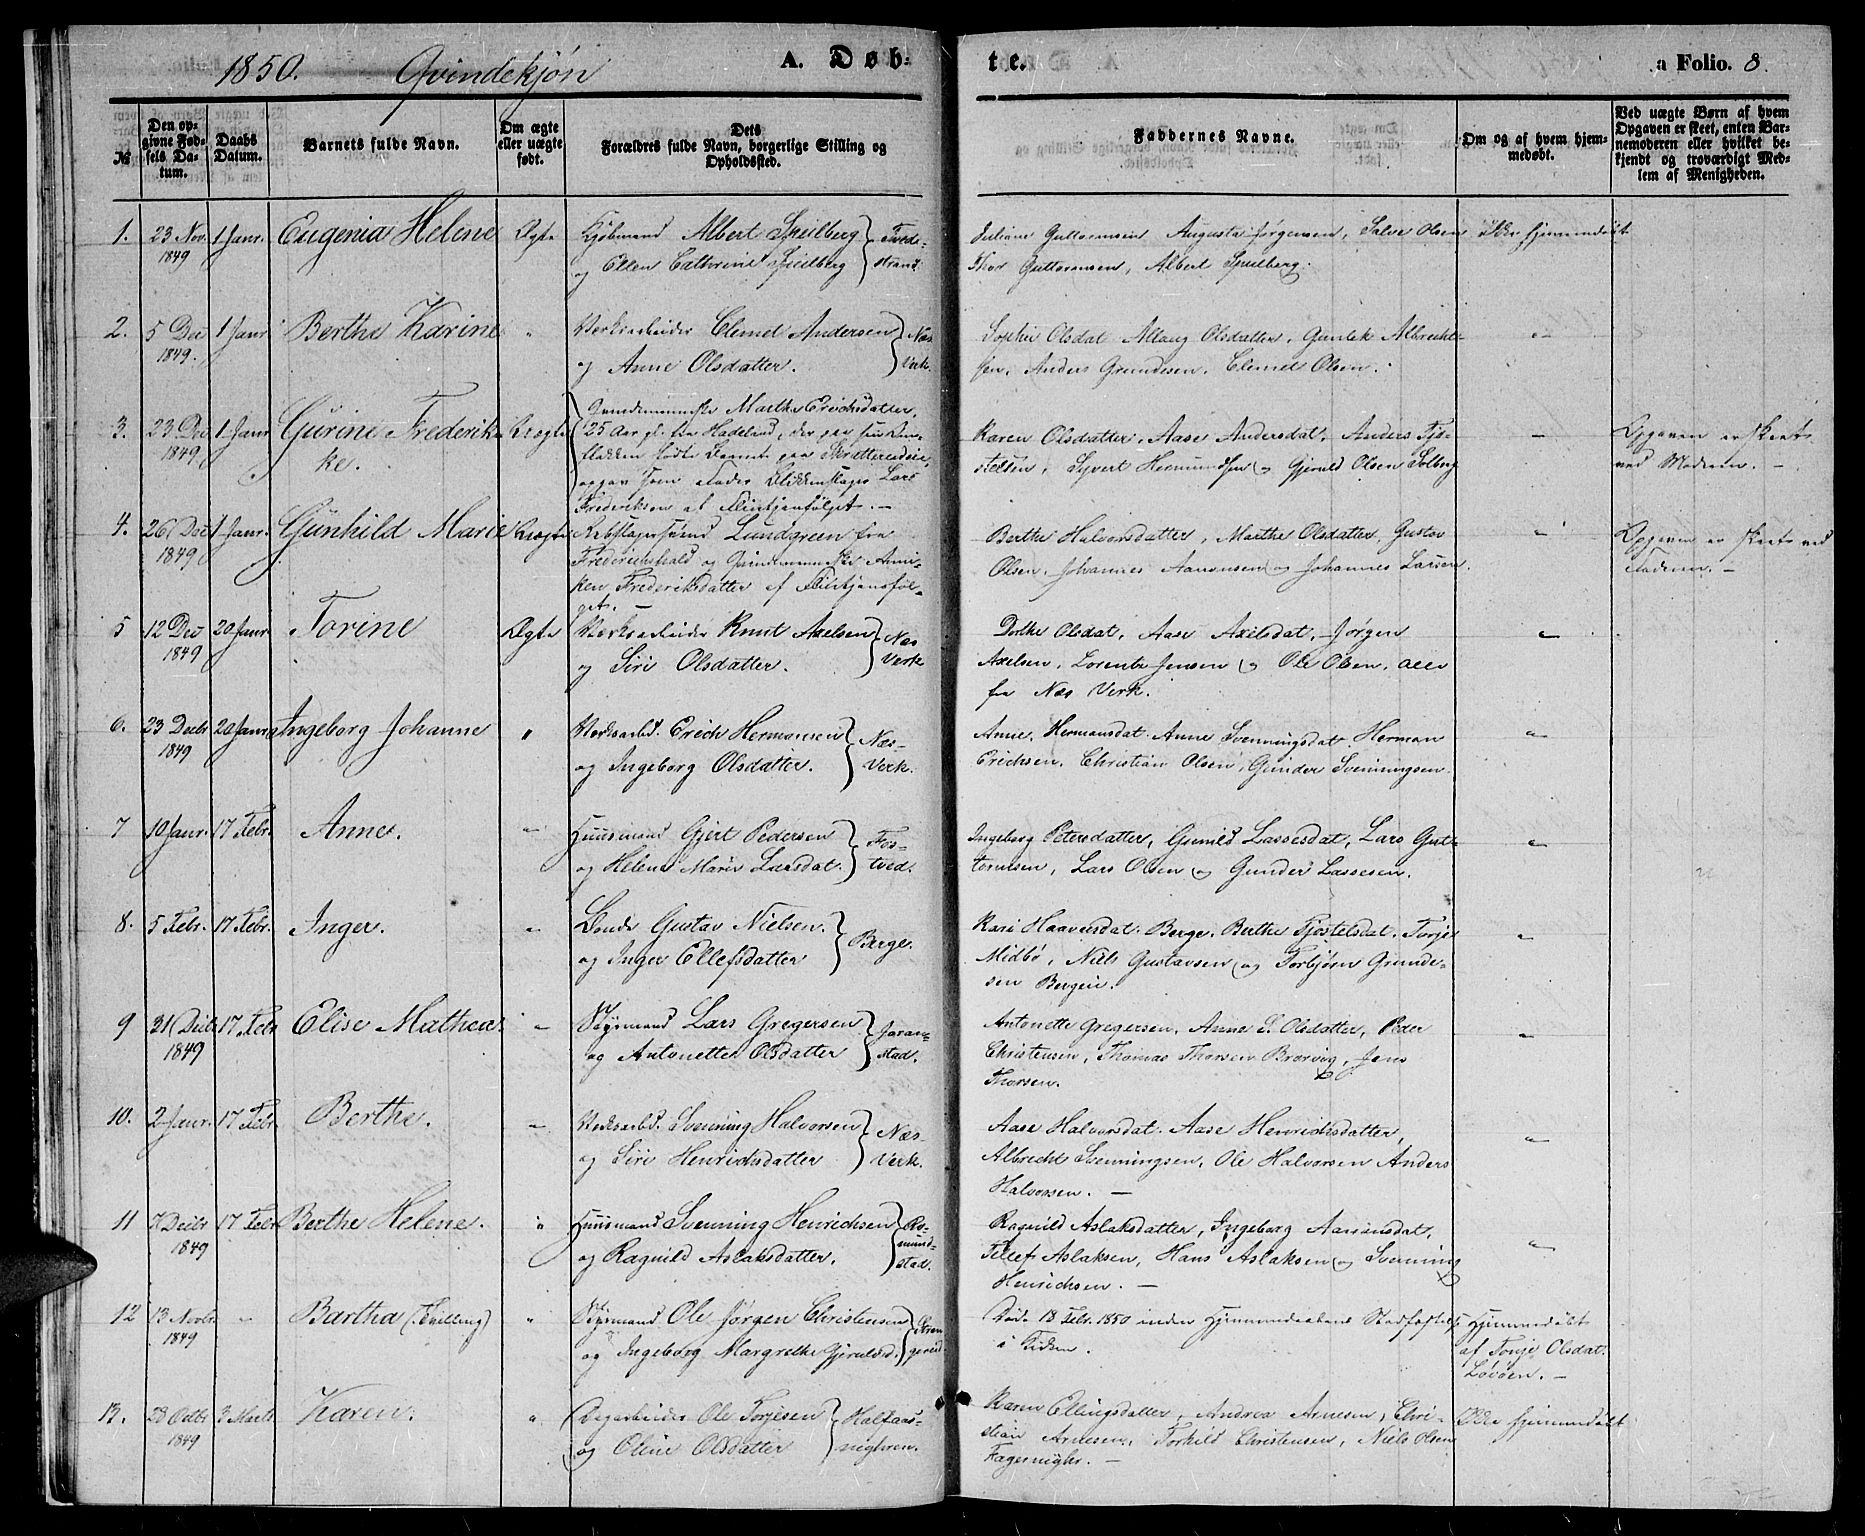 1850. Qvindekjön A. Døb- te. a Folio. 8.
№ Den opgivne Fødsels Datum. Daabs Datum. Barnets fulde Navn. Om ægte eller uægte født. Dets Forældres fulde Navn, borgerlige Stilling og Opholdssted. Faddernes Navne. Om og af hvem hjemmedøbt. Ved uægte Børn af hvem Opgaven er skeet, enten Barnemoderen eller hvilket bekjendt og troværdigt Medlem af Menigheden.
1. 23 Nov. 1 Janr. Eugenia Helene Ægte Kjöbmand Albert Speilberg Tvede- Juliane Guttormsen Augusta Jörgensen, Salve Olsen ikke hjemmedöbt
1849 og Ellen Cathrine Speilberg strand Thor Guttormsen, Albert Speilberg.
2. 5 Dec 1 Janr Berthe Karine " Verksarbeider Clemet Andersen Næs Sophie Olsdat Allaug Olsdatter, Gunlek Albrecht-
1849. og Anne Olsdatter. Verk. sen, Anders Grundesen, Clemet Olsen.
3. 23 Dec 1 Janr Gurine Frederik- Uægte Qvindemenneske Marthe Erichsdatter,
1849 ke. 25 Aar gl. fra Hadeland, der paa sin Om- Karen Olsdatter, Aase Andersdat, Anders Fjö- Opgaven er skeet
flakken fødte Barnet paa Skrattereideie, stelsen, Syvert Hermundsen og Gjeruld Olsen Solberg ved Moderen. -
opgav som Fader Blikkenslager Lars
Frederiksen af Flintjenfölget. -
4. 26 Dec 1 Janr. Gunhild Marie Uægte Rebslagersvend Lundgreen fra Berthe Halvorsdatter, Marthe Olsdatter, Gustav Opgaven er skeet ved
1849 Frederikshald og Qvindemenneske Anni- Olsen, Johannes Aanonsen og Johannes Larsen. Faderen. -
ken Frederiksdatter af Flintjensföl-
get. -
5 12 Dec 20 Janr Torine Ægte Verksarbeider Knut Axelsen Næs Dorthe Olsdat, Aase Axelsdat, Jörgen
1849 og Siri Olsdatter. Verk Axelsen, Lorents Jensen og Ole Olsen, alle
fra Næs Verk.
6. 23 Decbr 20 Janr Ingeborg Johanne " Verksarbd. Erich Hermansen Næs- Anne Hermansdat. Anne Svenningsdat Herman
1849 og Ingeborg Olsdatter. Verk. Erichsen, Christian Olsen, Gunder Svenningsen.
7 10 Janr. 17 Febr. Anne. " Huusmand Gjert Pedersen Fos- Ingeborg Petersdatter, Gunild Lassesdat, Lars Gut-
og Helene Marie Larsdat. tved. tormsen, Lars Olsen og Gunder Lassesen.
8. 5 Febr. 17 Febr. Inger. " Bonde Gustav Nielsen. Berge. Kari Haaversdat. Berge, Berthe Fjöstelsdat. Torje
og Inger Ellefsdatter Midbö, Niels Gustavsen og Torbjörn Grunde-
sen Bergeie.
9 31 Decbr 17 Febr Elise Mathea. " Söemand Lars Gregersen Jaran- Antonette Gregersen, Anne S. Olsdatter, Peder
1849 og Antonette Olsdatter stad. Christensen, Thomas Thorsen Brorvig, Jens
Thorsen.
10. 2 Janr. 17 Febr Berthe. " Verksarbd. Svenning Halvorsen Næs- Aase Halvorsdat. Aase Henrichsdatter,
og Siri Henrichsdatter Verk. Albrecht Svenningsen, Ole Halvorsen Anders
Halvorsen. -
11 7 Decbr 17 Febr Berthe Helene. " Huusmand Svenning Henrichsen Ro- Ragnild Aslaksdatter, Ingeborg Aanonsdat,
1849 og Ragnild Aslaksdatter. mund- Tellef Aslaksen, Hans Aslaksen og Svenning
stad. Henrichsen. -
12 13 Novbr " Bartha (Tvilling) " Söemand Ole Jörgen Christensen Död. 18 Febr. 1850 inden Hjemmedaabens Stadfæstelse Hjemmedöbt
1849 og Ingeborg Margrethe Gjeruldsd. i Kirken. af Tonje Olsdat.
Lövöen. -
13. 28 Octbr 3 Marts Karen. " Dagarbeider Ole Torjesen Halfaas- Karen Ellingsdatter, Andrea Arnesen, Chri- Ikke hjemmedöbt
1849 og Oline Olsdatter nighren. stian Arnesen, Torkild Christensen, Niels Olsen
Fagernighr. -